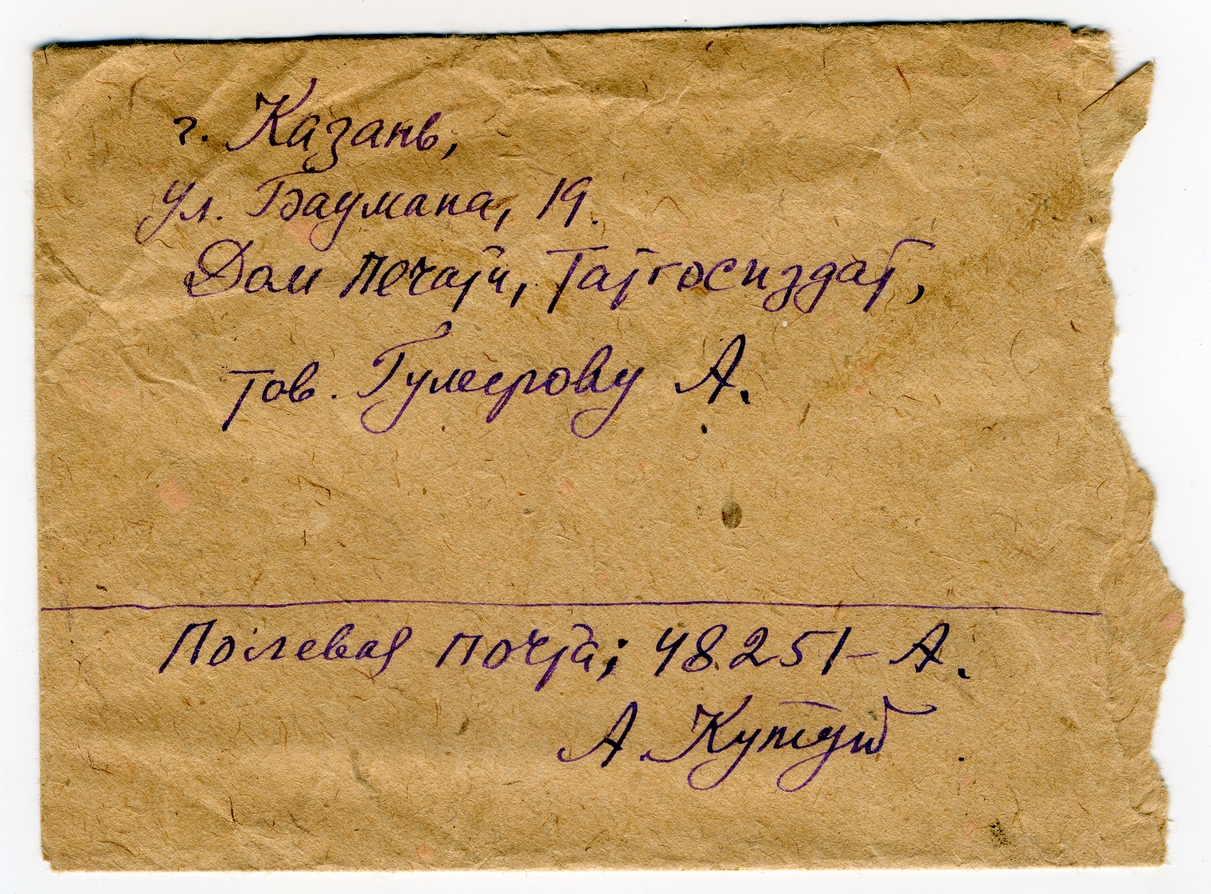 г. Казань,
ул. Баумана, 19.
Дом печати, Татгосиздат,
тов. Гумерову А.
Полевая почта; 48251-А.
А. Кутуй